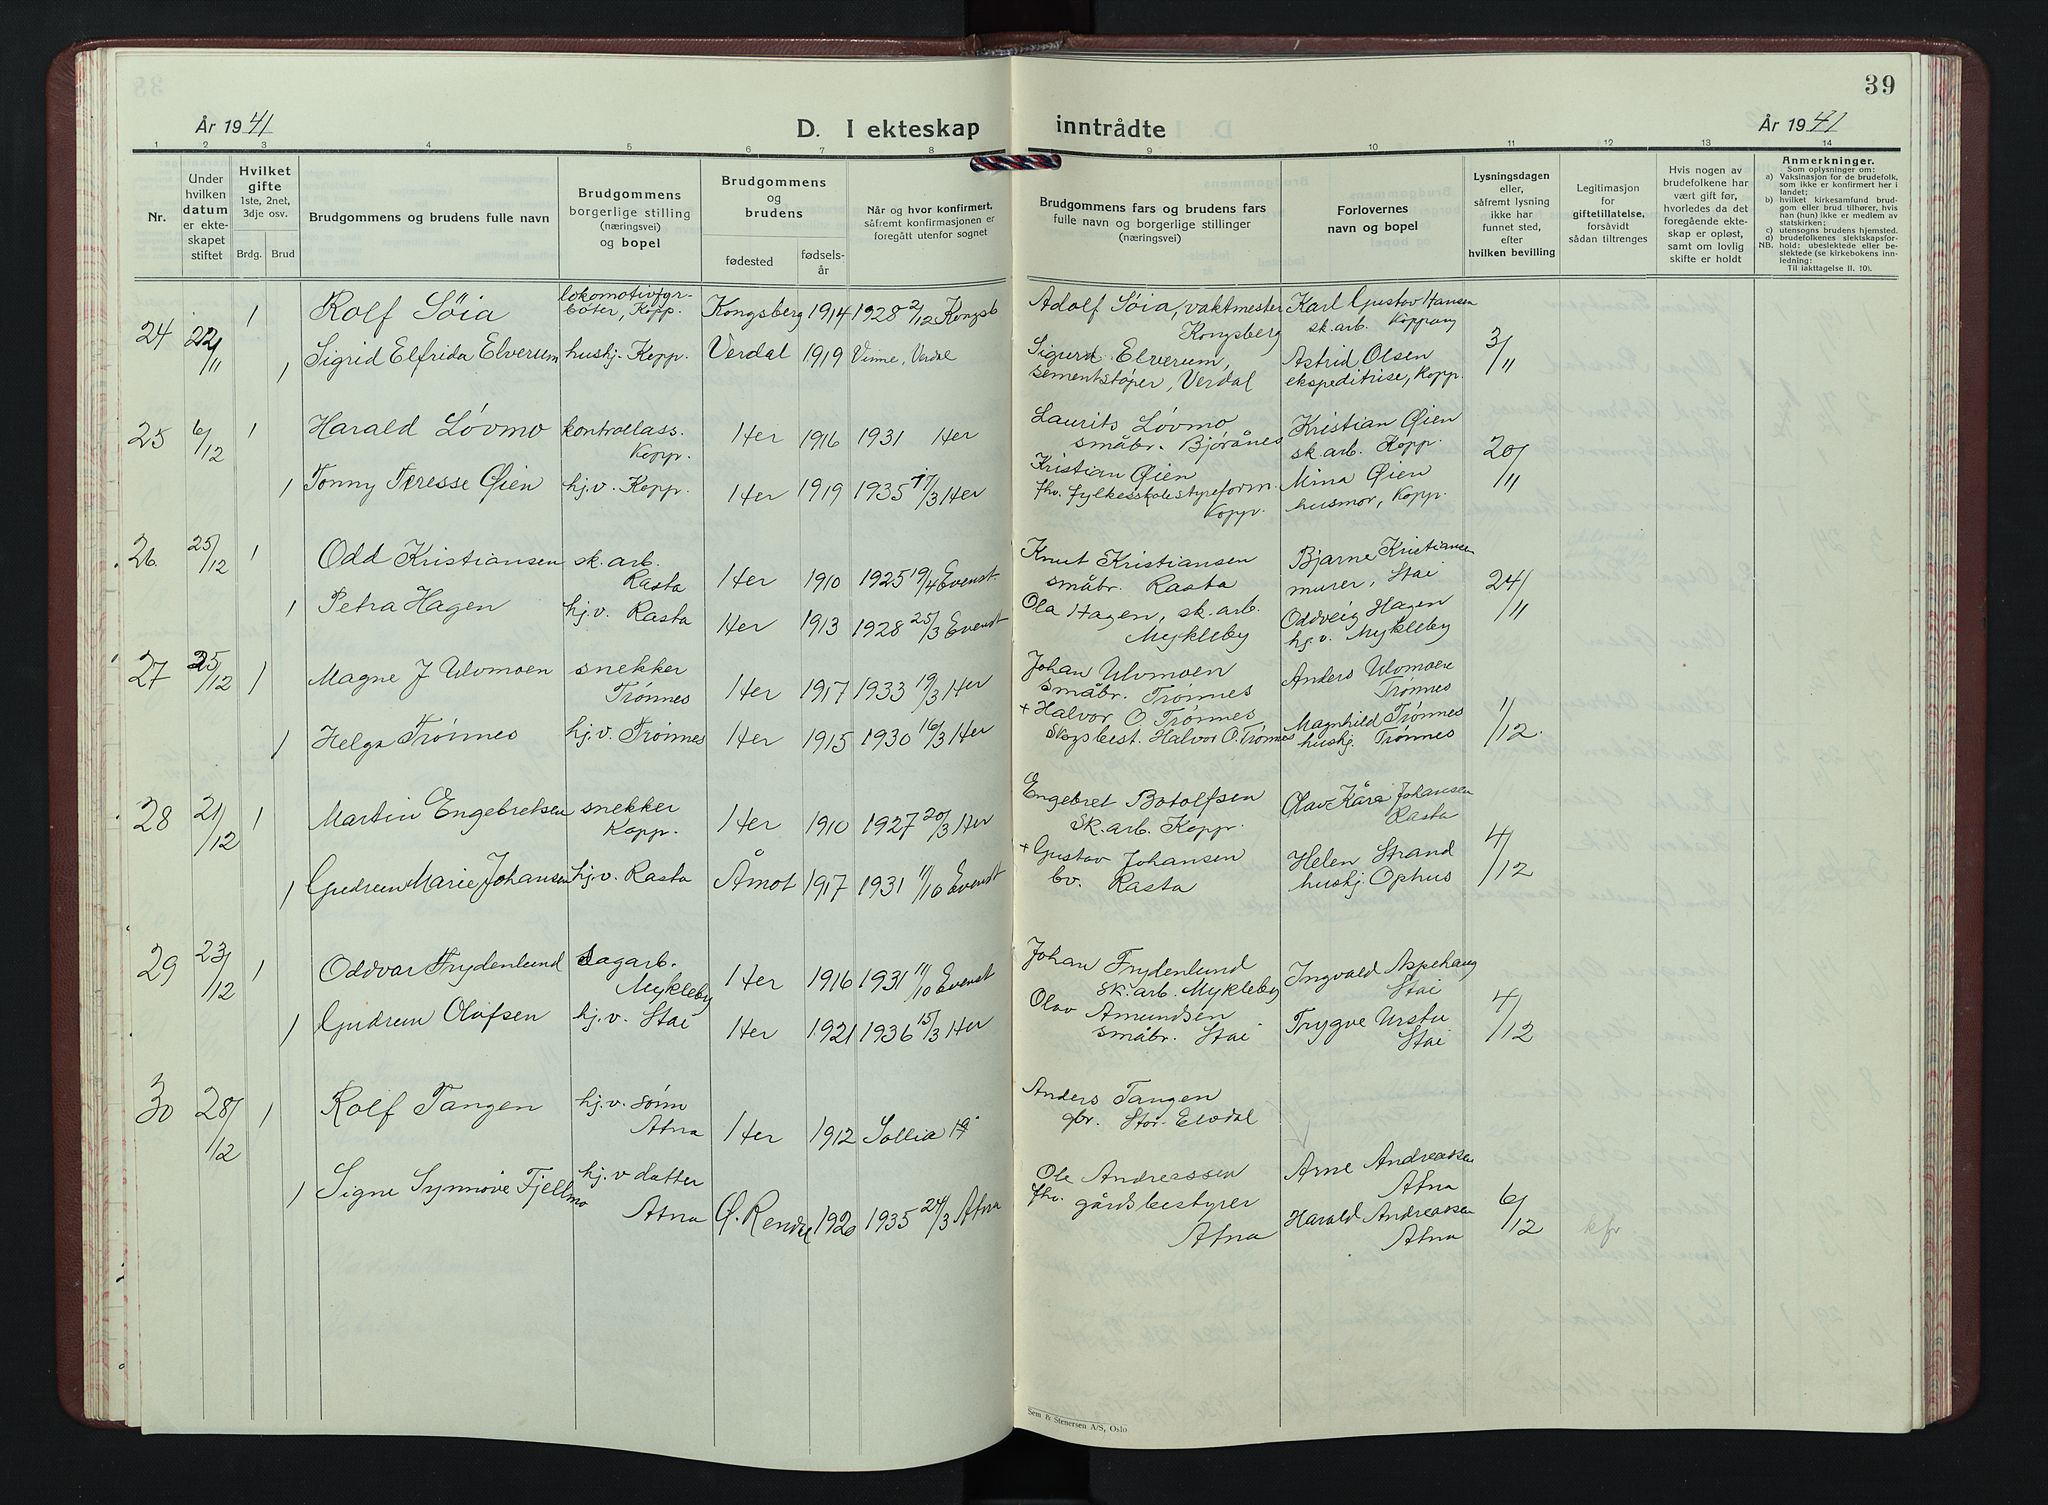 39
År 1941
D. I ekteskap inntrådte
År 1941
1 2 3 4 5 6 7 8 9 10 11 12 13 14
Nr.
Under hvilken datum er ekteskapet stiftet
Hvilket gifte 1ste, 2net, 3dje osv.
Brdg. Brud
Brudgommens og brudens fulle navn
Brudgommens borgerlige stilling (næringsvei) og bopel
Brudgommens og brudens
fødested
fødselsår
Når og hvor konfirmert, såfremt konfirmasjonen er foregått utenfor sognet
Brudgommens fars og brudens fars fulle navn og borgerlige stillinger (næringsvei)
Forlovernes navn og bopel
Lysningsdagen eller, såfremt lysning ikke har funnet sted, efter hvilken bevilling
Legitimasjon for giftetillatelse, forsåvidt sådan tiltrenges
Hvis nogen av brudefolkene har vært gift før, hvorledes da det foregående ekteskap er opløst, samt om lovlig skifte er holdt
Anmerkninger.
Som oplysninger om:
a) Vaksinasjon for de brudefolk, som ikke er konfirmert her i landet;
b) hvilket kirkesamfund brudgom eller brud tilhører, hvis han (hun) ikke er medlem av statskirken;
c) utensogns brudens hjemsted.
d) brudefolkenes slektskapsforhold: ubeslektede eller beslektede (se kirkebokens innledning:
NB. Til iakttagelse II. 10).
24 22/11 1 Rolf Söia lokomotivfyrböter, Kopp. Kongsberg 1914 1928 2/12 Kongsb Adolf Söia, vaktmester Kongsberg Karl Gustav Hansen sk.arb. Koppang 3/11
1 Sigrid Elfrida Elverum hushj. Kopp. Verdal 1919 Vinne, Verdal Sigurd Elverum, sementstöper, Verdal Astrid Olsen ekspeditrise, Kopp.
25 6/12 1 Harald Lövmo kontrollass. Kopp. Her 1916 1931 Her Laurits Lövmo småbr. Bjørånes Kristian Øien sk.arb. Kopp. 20/11
1 Tonny Teresse Øien hj.v. Kopp. Her 1919 1935 17/3 Her Kristian Øien fhv. fylkesskolestyreform. Kopp. Mina Øien husmor, Kopp.
26. 25/12 1 Odd Kristiansen sk. arb. Rasta Her 1910 1925 19/4 Evenst. Knut Kristiansen småbr. Rasta Bjarne Kristiansen murer, Stai 24/11
1 Petra Hagen hj.v. Rasta Her 1913 1928 25/3 Evenst Ola Hagen, sk.arb. Mykleby Oddveig Hagen hj.v. Mykleby
27 25/12 1 Magne J Ulvmoen snekker Trønnes Her 1917 1933 19/3 Her Johan Ulvmoen småbr. Trønnes Anders Ulvmoen Trønnes 1/12.
1 Helga Trønnes hj.v. Trønnes Her 1915 1930 16/3 Her + Halvor O. Trønnes, Skogsbest. Halvor O. Trønnes Magnhild Trønnes hushj. Trønnes
28 21/12 1 Martin Engebretsen snekker Kopp. Her 1910 1927 20/3 Her Engebret Botolfsen sk.arb. Kopp. Olav Kåre Johansen Rasta 4/12
1 Gudrun Marie Johansen hj.v. Rasta Åmot 1917 1931 11/10 Evenst + Gustav Johansen bv. Rasta Helen Strand hushj. Ophus
29 23/12 1 Oddvar Frydenlund sagarb. Mykleby Her 1916 1931 11/10 Evenst Johan Frydenlund sk.arb. Mykleby Ingvald Aspehaug Stai 4/12
1 Gudrun Olafsen hj.v. Stai Her 1921 1936 15/3 Her Olav Amundsen småbr. Stai Trygve Urstu Stai
30 28/12 1 Rolf Tangen hj.v. sönn Atna Her 1912 Sollia 19 Anders Tangen gbr. Stor-Elvdal Arne Andreassen Atna 6/12 kfr
1 Signe Synnöve Fjellmo hj.v datter Atna Ø. Rendal 1920 1935 24/3 Atna Ole Andreassen fhv. gårdsbestyrer Atna Harald Andreassen Atna
Sem & Stenersen A/S, Oslo